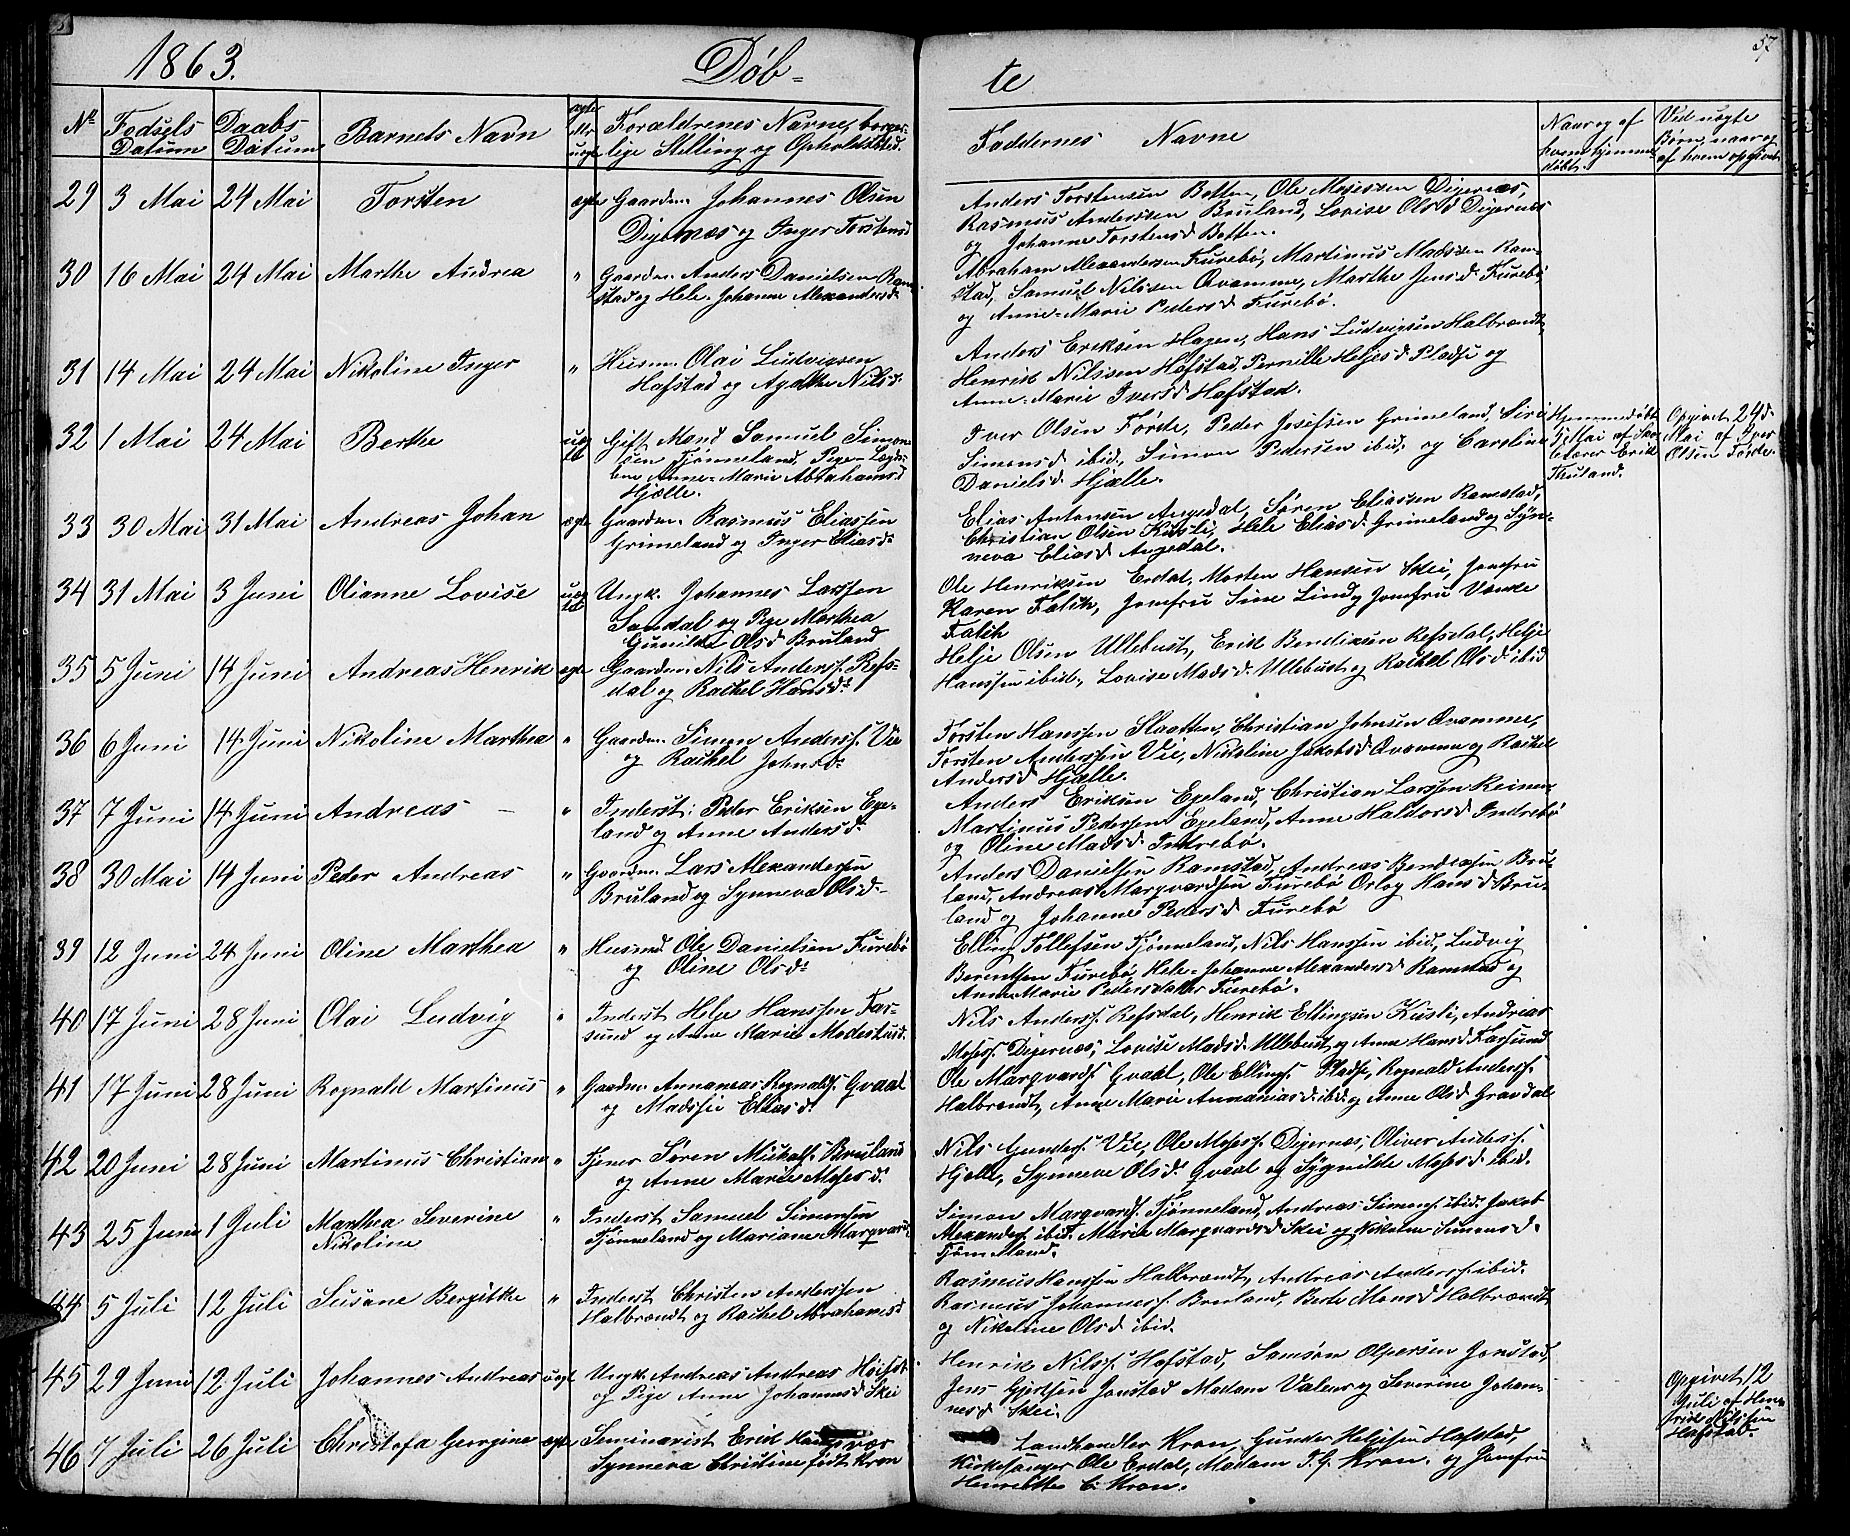 57
1863. Døb- te
No Fødsels Datum Daabs Datum Barnets Navn ægte eller uægte Forældrenes Navne, borger-
lige Stilling og Opholdssted. Faddernes Navne Naar og af hvem hjemmedøbt. Ved uægte Børn, naar og af hvem opgivet
29 3 Mai 24 Mai Torsten ægte Gaardm. Johannes Olsen
Digernæs og Inger Torstensd
Anders Torstensen Botten, Ole Mosessen Digernæs,
Rasmus Anderssen Bruland, Lovise Olsd Digernæs
og Johanne Torstensd Botten.
30 16 Mai 24 Mai Marthe Andrea " Gaardm. Anders Danielsen Ram-
stad og Hele-Johanne Alexandersd.
Abraham Alexandersen Furebø, Martinus Madssen Ram-
stad, Samuel Nilssen Qvamme, Marthe Jensd Furebø,
og Anne-Marie Pedersd Furebø.
31 14 Mai 24 Mai Nikoline Inger " Husm. Olai Ludvigsen
Hafstad og Agathe Nilsd.
Anders Eriksen Hagen, Hans Ludvigsen Halbrændt,
Henrik Nilssen Hafstad, Pernille Heljesd. Pladse og
Anne-Marie Iversd Hafstad.
32 1 Mai 24 Mai Berthe uægte Gift Mand Samuel Simon-
sen Tjønneland, Pige-Lægds-
Anne-Marie Abrahamsd
Hjelle.
Iver Olsen Førde, Peder Josefsen Grimeland, Siri
Simonsd ibid., Simon Pedersen ibid., og Caroline
Danielsd. Hjelle.
Hjemmedøbt
Mai af
Erik
Huland.
Opgivet 24d.
Mai af Iver
Olsen Førde.
33 30 Mai 31 Mai Andreas Johan ægte Gaardm. Rasmus Eliassen
Grimeland og Inger Eliasd.
Elias Antonsen Angedal, Søren Eliassen Ramstad,
Christian Olsen Kusli, Hele Eliasd. Grimeland og Syn-
neva Eliasd Angedal.
34 31 Mai 3 Juni Olianne Lovise uægte Ungk. Johannes Larssen
Sandal og Pige Marthea
Gunnilda Olsd Bruland
Ole Henriksen Erdal, Morten Hansen Skei, Jomfru
Karen Falch, Jomfru Sine Lind og Jomfru Venke
Falch
35 5 Juni 14 Juni Andreas Henrik ægte Gaardm. Nils Anderss. Refs-
dal og Rachel Hansd.
Helje Olsen Ullebust, Erik Bendiksen Refsdal, Helje
Hanssen ibid., Lovise Madsd. Ullebust og Rachel Olsd ibid
36 6 Juni 14 Juni Nikoline Marthea " Gaardm. Simon Anderss. Vie
og Rachel Johnsd.
Torsten Hanssen Slaatten, Christian Johnsen Qvamme,
Torsten Anderssen Vie, Nikoline Jakobsd Qvamme og Rachel
Andersd Hjelle.
37 7 Juni 14 Juni Andreas — " Inderst: Peder Eriksen Ege-
land og Anne Andersd.
Anders Eriksen Egeland, Christian Larssen Reinen,
Martinus Pederssen Egeland, Anne Haldorsd Indrebø
og Oline Madsd. Indrebø.
38 30 Mai 14 Juni Peder Andreas " Gaardm. Lars Alexandersen
Bruland og Synneva Olsd.
Anders Danielsen Ramstad, Andreas Bendixsen Bru-
land, Andreas Margvardsen Furebø Hansd Bru-
land og Johanne Pedersd Furebø
39 12 Juni 24 Juni Oline Marthea " Husmd. Ole Danielsen Furebø
og Oline Olsd.
Elling Tollefsen Tjønneland, Nils Hanssen ibid, Ludvig
Berentsen Furebø, Hele-Johanne Alexandersd Ramstad og
Anne Marie Pedersdatter Furebø.
40 17 Juni 28 Juni Olai Ludvig " Inderst Helje Hanssen Far-
sund og Anne Marie Modestusd.
Nils Anderss. Refsdal, Henrik Ellingsen Kusli, Andreas
Moses. Digernæs, Lovise Madsd. Ullebust og Anne Hansd Farsund
41 17 Juni 28 Juni Rognald Martinus " Gaardm. Annanias Rognalds. Gvaal
og Madssie Eliasd.
Ole Margvards. Gvaal, Ole Ellings. Pladse, Rognald Anderss.
Halbrændt, Anne Marie Annaniasd. ibid og Anne Olsd Gravdal
42 20 Juni 28 Juni Martinus Christian " Tjener Søren Mickals. Bruland
og Anne Marie Mosesd.
Nils Gunders. Vie, Ole Moses. Digernæs, Oliver Anderss.
Hjelle, Synneve Olsd. Gvaal og Sygnilde Mosesd. ibid.
43 25 Juni 1 Juli Marthea Severine
Nikoline
" Inderst Samuel Simonsen
Tjønneland og Mariane Margvardsd.
Simon Margvards. Tjønneland, Andreas Simons. ibid. Jakob
Alexanders. ibid. Marie Margvardsd Skei og Nikoline Simonsd.
Tjønneland.
44 5 Juli 12 Juli Susane Bergitthe " Inderst Christen Anderssen
Halbrændt og Rachel Abrahamsd
Rasmus Hanssen Halbrændt, Andreas Anderss. ibid.
Rasmus Johanness. Bruland, Berte Monsd Halbrændt
og Nikoline Olsd ibid.
45 29 Juni 12 Juli Johannes Andreas uægt Ungk Andreas Andreas
og Pige Anne Johannesd Skei
Henrik Nilss. Hafstad, Samson Olpersen Jonstad,
Jens Gjertsen Jonstad Madam Valen og Severine Johan-
nesd Skei.
Opgivet 12
Juli af Hen-
rik Nilssen
Hafstad.
46 7 Juli 26 Juli Christofa Georgine ægte Seminarist Erik
Synneva Christine født Kron
Landhandler Kron, Gunder Heljesen Hafstad,
Kirkesanger Ole Erdal, Madam I. G. Kron. og Jomfru
Henriette C. Kron.